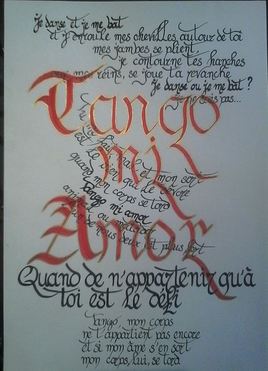 Je danse et je me bat
et j'enroule mes chevilles autour de toi
mes jambes se plient,
je contourne tes hanches
mes reins, se joue ta revanche
Je danse ou je me bat ?
pas...
Tango
mi
Amor
et mon sort
est le lien qui le dévore
quand mon corps se tord
Tango mi amor
ou
deux plus fort
Quand de n'appartenir qu'à
toi est le défi
Tango, mon corps
ne t'appartient pas encore
et si mon âme s'en sort
mon corps, lui, se tord